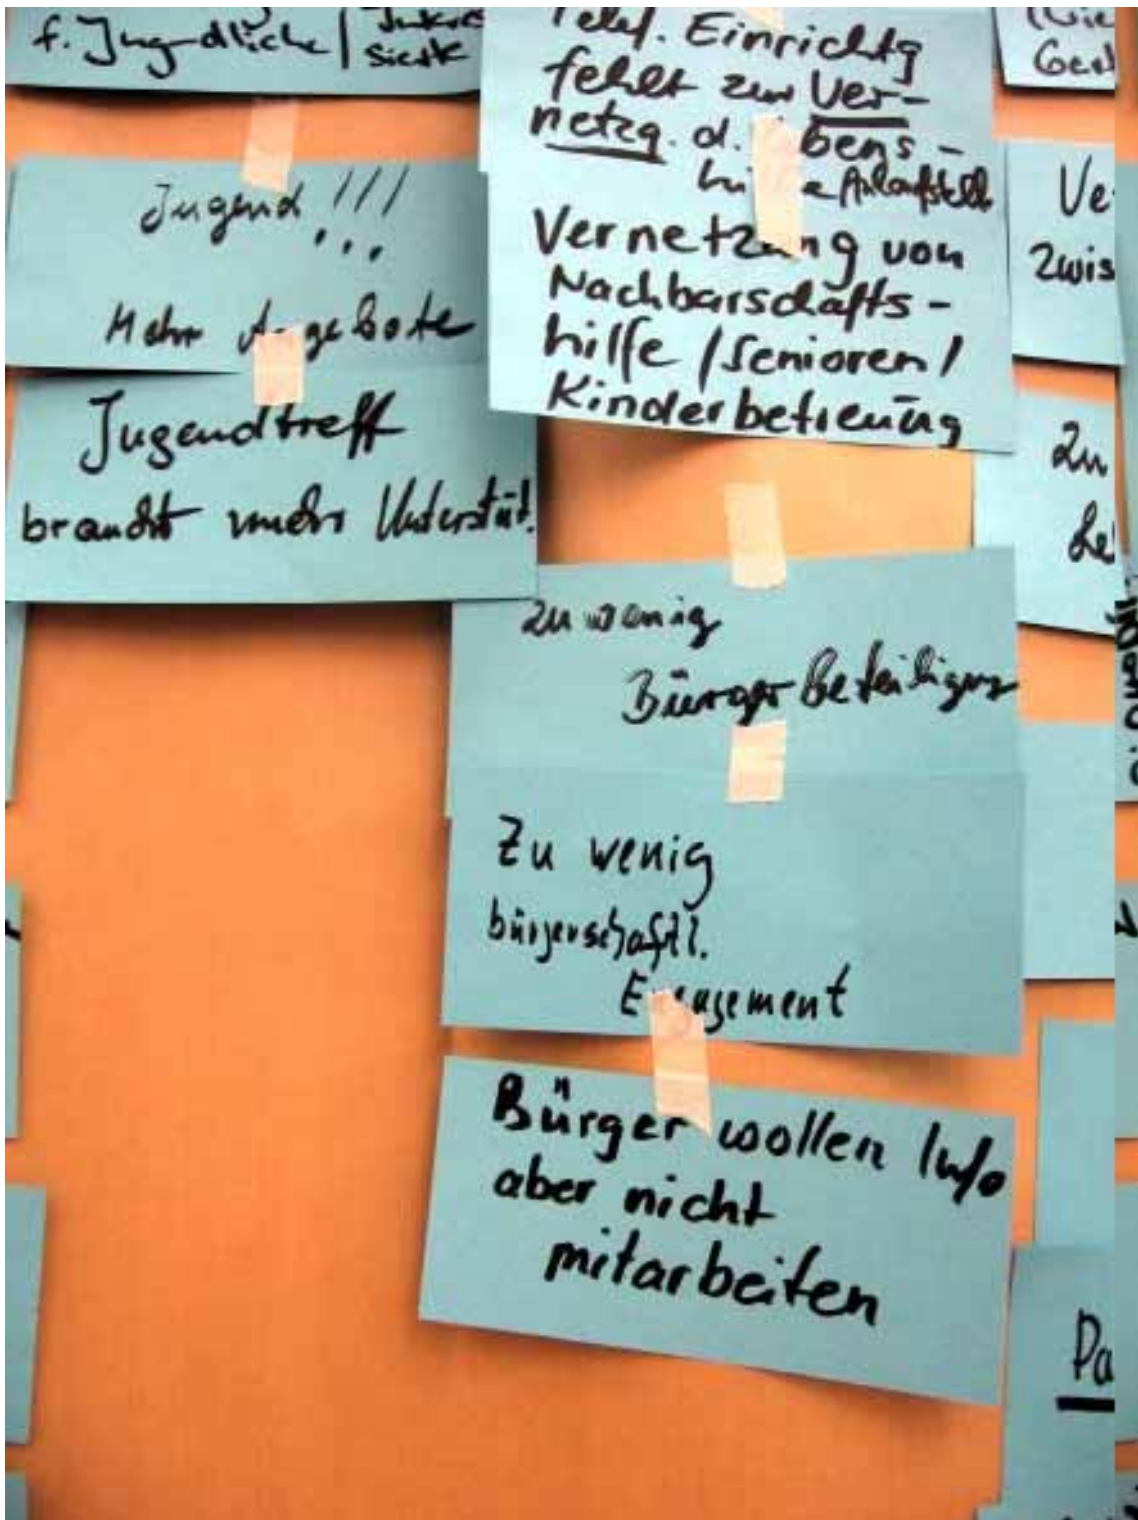 f. Jugendliche /
Jugend !!!
Mehr Angebote
Jugendtreff
braucht mehr Unterstüt.
Telef. Einrichtg
fehlt zur Ver-
netzg. d.
Anlaufstelle
Vernetzung von
Nachbarschafts-
hilfe / Senioren /
Kinderbetreuung
zu wenig
Bürgerbeteiligung
Zu wenig
bürgerschaftl.
Engagement
Bürger wollen Info
aber nicht
mitarbeiten
Zu